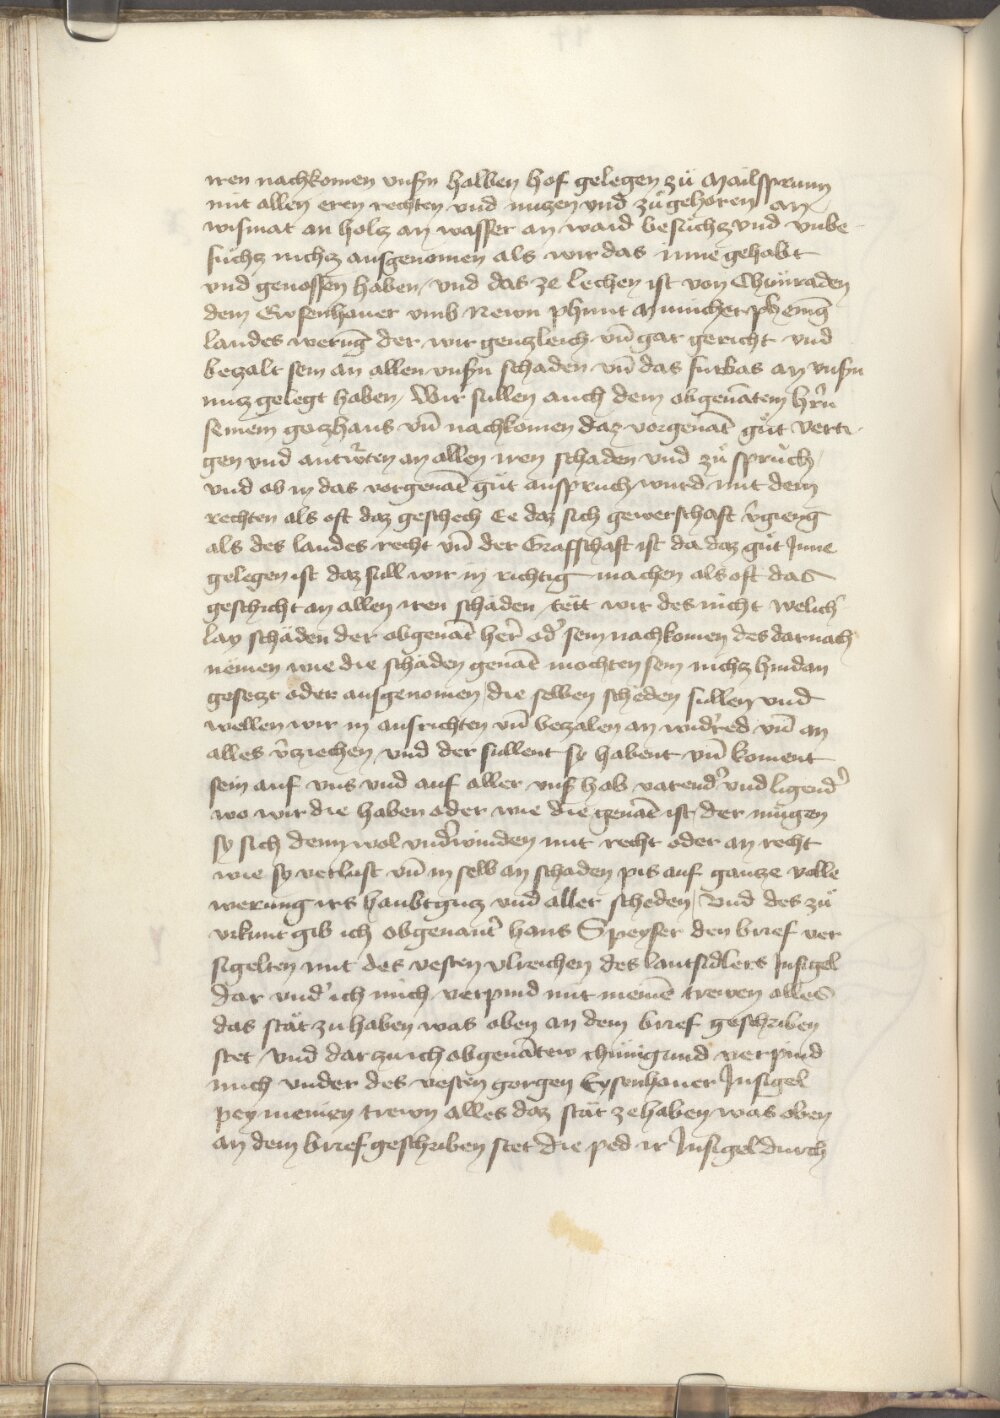 iren nachkomen vnsn halben hof gelegen zů Mailsprunn
mit allen eren rechten vnd nuzen vnd zů gehoren an
wismat an holz an wasser an waid besůchz vnd vnbe
sůchz nichz ausgenomen als wir das inne gehabt
vnd genossen haben vnd das ze lechen ist von Chůnraden
dem Eysenhauer vmb Newn phunt Municher phening
landes werung der wir genzleich vn̄ gar gericht vnd
bezalt sein an allen vnsn schaden vn̄ das furbas an vnsn
nutz gelegt haben Wir sullen auch dem obgenātem hr̄n
seinem gozhaus vn̄ nachkomen daz vorgenāt gůt verti
gen vnd antw̄rten an allen iren schaden vnd zů sprůch
vnd ob in das vorgenāt gůt ansprůch wurd mit dem
rechten als oft daz geschech Ee daz sich gewerschaft v̓gieng
als des landes recht vn̄ der Grafschaft ist da daz gůt Inne
gelegen ist daz sull wir in richtig machen als oft das
geschicht an allen iren schäden tëtt wir des nicht welich̓
lay schäden der obgenāt her̄ od̓ sein nachkomen des darnach
nëmen wie die schäden genāt mochten sein nichz hindan
gesetzt oder ausgenomen die selben scheden sullen vnd
wellen wir in ausrichten vn̄ bezalen an wid̓red vn̄ an
alles v̓ziechen vnd der sullent sy habent vn̄ koment
sein auf vns vnd auf aller vns̓ hab varend̓ vnd ligend̓
wo wir die haben oder wie die genāt ist der mugen
sy sich denn wol vnd̓winden mit recht oder an recht
wie sy verlust vn̄ in selb an schaden pis auf gantze volle
werung irs haubtgutz vnd aller scheden Vnd des zů
vrkunt gib ich obgenant̓ hans Speyser den brief ver
sigelten mit des vesten vlreichen des lantsidlers Insigel
dar vnd̓ ich mich verpind mit meinē trewen alles
das stät zu haben was oben an dem brief geschriben
stet Vnd dar zu ich obgenātew chůnigund verpind
mich vnder des vesten gorgen Eysenhauer Insigel
pey meinen trewn alles daz stät ze haben was oben
an dem brief geschriben stet die ped ir Insigel durch